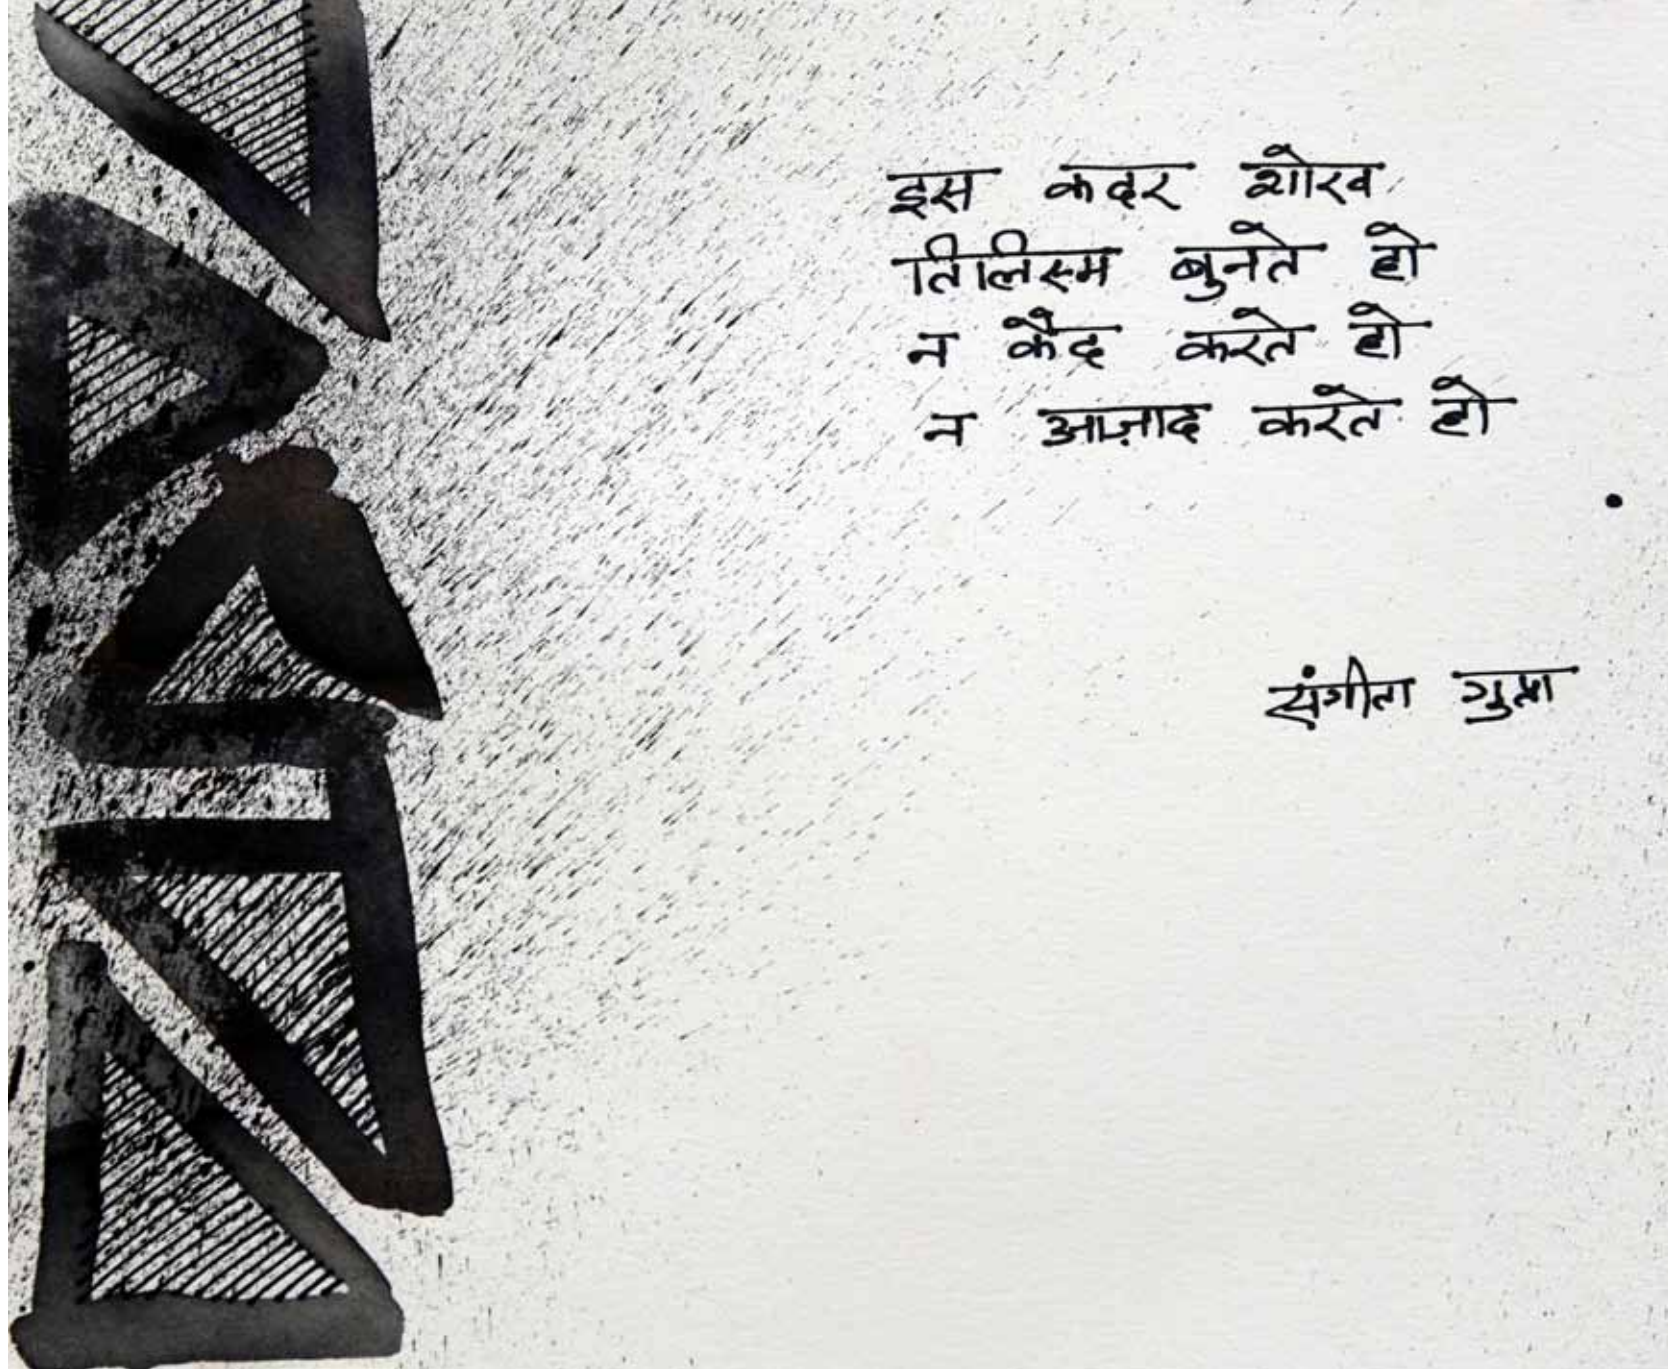 इस कदर शोख
तिलिस्म बुनते हो
न कैद करते हो
न आज़ाद करते हो
संगीता गुप्ता